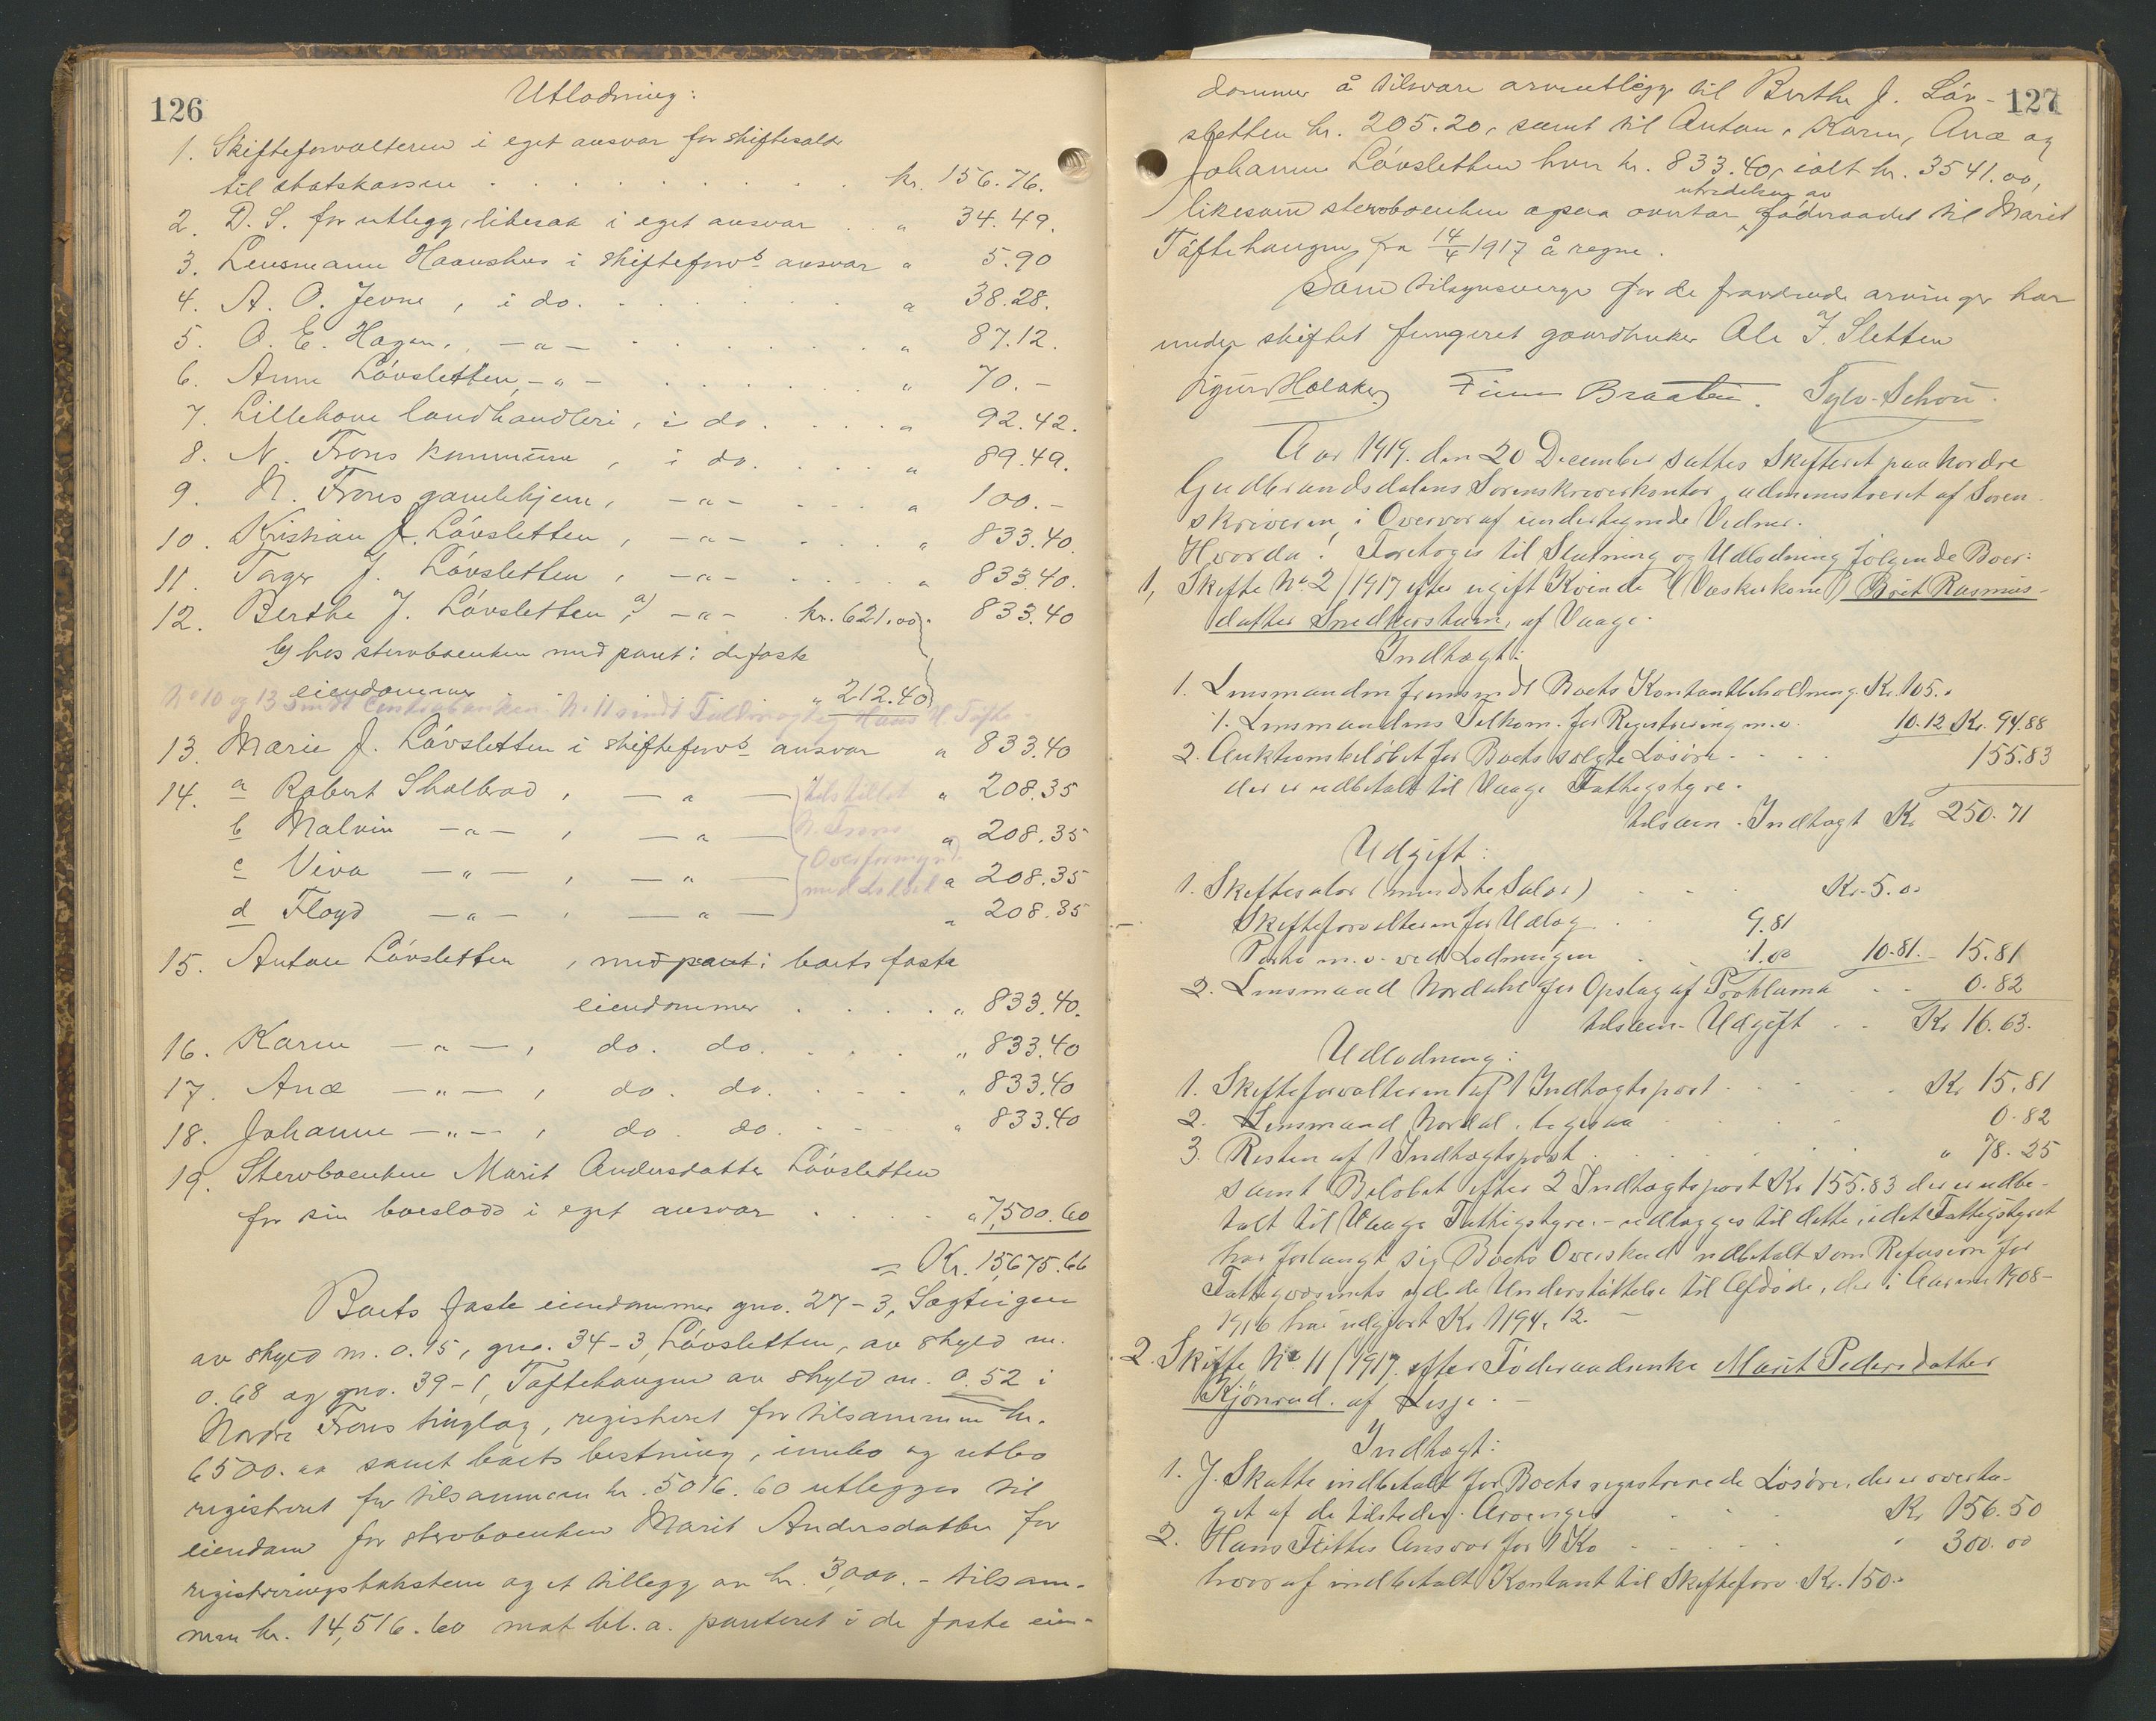 126
Utlodning:
1. Skifteforvalteren i eget ansvar for skiftesalær
til statskassen . . . . . kr. 156.76.
2. D. S. for utlegg, likesaa i eget ansvar . . " 34.49.
3. Lensmann Haavshus i skifteforvs ansvar " 5.90
4. A. O. Jevne, i do. . . . . " 38.28.
5. O. E. Hagen, — " — . . . . " 87.12.
6. Anne Løvsletten, — " — . . . . " 70.-
7. Lillehove landhandleri, i do. . . . " 92.42.
8. N. Frons kommune, i do. . . . " 89.49.
9. N. Frons gamlehjem, — " — . . . " 100.-
10. Kristian J. Løvsletten, — " — . . . " 833.40.
11. Tager J. Løvsletten, — " — . . . " 833.40.
12. Berthe J. Løvsletten, a) — " — . kr. 621.00 " 833.40
b) hos stervboenken med pant i de faste
eiendommer " 212.40
No 10 og 13 sendt Centralbanken. No 11 sendt Hans H. Tofte.
13. Marie J. Løvsletten i skifteforvs ansvar " 833.40
14. a Robert Skolbrad, — " — tilstillet " 208.35
b Malvin — " —, — " — N. Frons " 208.35
c Viva — " —, — " — Overformynd. " 208.35
d Floyd — " —, — " — " 208.35
15. Anton Løvsletten, med pant i boets faste
eiendommer . . . . " 833.40.
16. Karen — " —, do. do. . . . " 833.40
17. Anæ — " —, do. do. . . . " 833.40
18. Johanne — " —, do. do. . . . " 833.40
19. Stervboenken Marit Andersdatter Løvsletten
for sin boeslodd i eget ansvar . . . . " 7,500.60
= Kr. 15,675.66
Boets faste eiendommer gno. 27-3, Sagteigen
av skyld m. 0.15, gno. 34-3, Løvsletten, av skyld m.
0.68 og gno. 39-1, Toftehaugen av skyld m. 0.52 i
Nordre Frons tinglag, registreret for tilsammen kr.
6500.00 samt boets besetning, innbo og utbo
registreret for tilsammen kr. 5016.60 utlegges til
eiendom for stervboenken Marit Andersdatter for
registreringstaksten og et tillegg av kr. 3,000.- tilsam-
men kr. 14,516.60 mot bl. a. panteret i de faste eien-
127
dommer å tilsvare arveutlegg til Berthe J. Løv-
sletten kr. 205.20, samt til Anton, Karen, Anæ og
Johanne Løvsletten hver kr. 833.40, ialt kr. 3541.00,
utredelsen av
likesom stervboenken ogsaa overtar føderaadet til Marit
Toftehaugen fra 14/4 1917 å regne.
Som tilsynsverge for de fraværende arvinger har
under skiftet fungeret gaardbruker Ole J. Sletten
Sigurd Holaker Finn Braaten. Sylv. Schou.
Aar 1919 den 20 December sattes Skifteret paa Nordre
Gudbrandsdalens Sorenskriverkontor, administreret af Soren-
skriveren, i Overvær af undertegnede Vidner.
Hvorda! Foretoges til Slutning og Udlodning følgende Boer:
1, Skifte No 2/1917 efter ugift Kvinde (Vaskerkone) Brit Rasmus-
datter Snedkerstuen, af Vaage.
Indtægt:
1. Lensmanden fremsendt Boets Kontantbeholdning Kr. 105.-
÷ Lensmandens Tilkom. for Registrering m.v. 10.12 Kr. 94.88
2. Auktionsbeløbet for Boets solgte Løsøre . . . . 155.83
der er udbetalt til Vaage Fattigstyre.
tilsam. Indtægt Kr. 250.71
Udgift:
1. Skiftesalær (mindste Salær) . . . Kr. 5.00
Skifteforvalteren for Udlæg . . 9.81
Porto m.v. ved Lodningen . . 1.00 10.81.- 15.81
2. Lensmand Nordahl for Opslag af Proklama . . 0.82
tilsam. Udgift . . Kr. 16.63.
Udlodning:
1. Skifteforvalteren af 1 Indtægtspost . . . . Kr. 15.81
2. Lensmand Nordal, ligesaa . . . . 0.82
3. Resten af 1 Indtægtspost . . . . " 78.25
samt Beløbet efter 2 Indtægtspost Kr. 155.83 der er udbe-
talt til Vaage Fattigstyre - udlægges til dette, idet Fattigstyret
har forlangt sig Boets Overskud udbetalt som Refusion for
Fattigvæsenets ydede Understøttelse til Afdøde, der i Aarene 1908-
1916 har udgjort Kr. 1194.12. —
2. Skifte No 11/1917 efter Føderaadsenke Marit Pedersdatter
Kjønrud. af Lesje. —
Indtægt:
1. J. Skatte indbetalt for Boets registrerede Løsøre, der er overta-
get af de tilstedev. Arvinger . . . Kr. 156.50
2. Hans Flittes Ansvar for 1 Ko . . . . " 300.00
hvoraf indbetalt Kontant til Skifteforv. Kr. 150.-